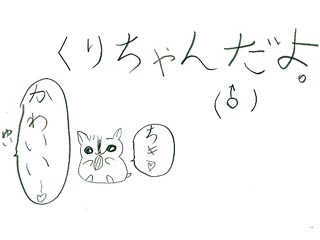 くりちゃんだよ。
(♂)
かわいいー♡
ちゅ♡